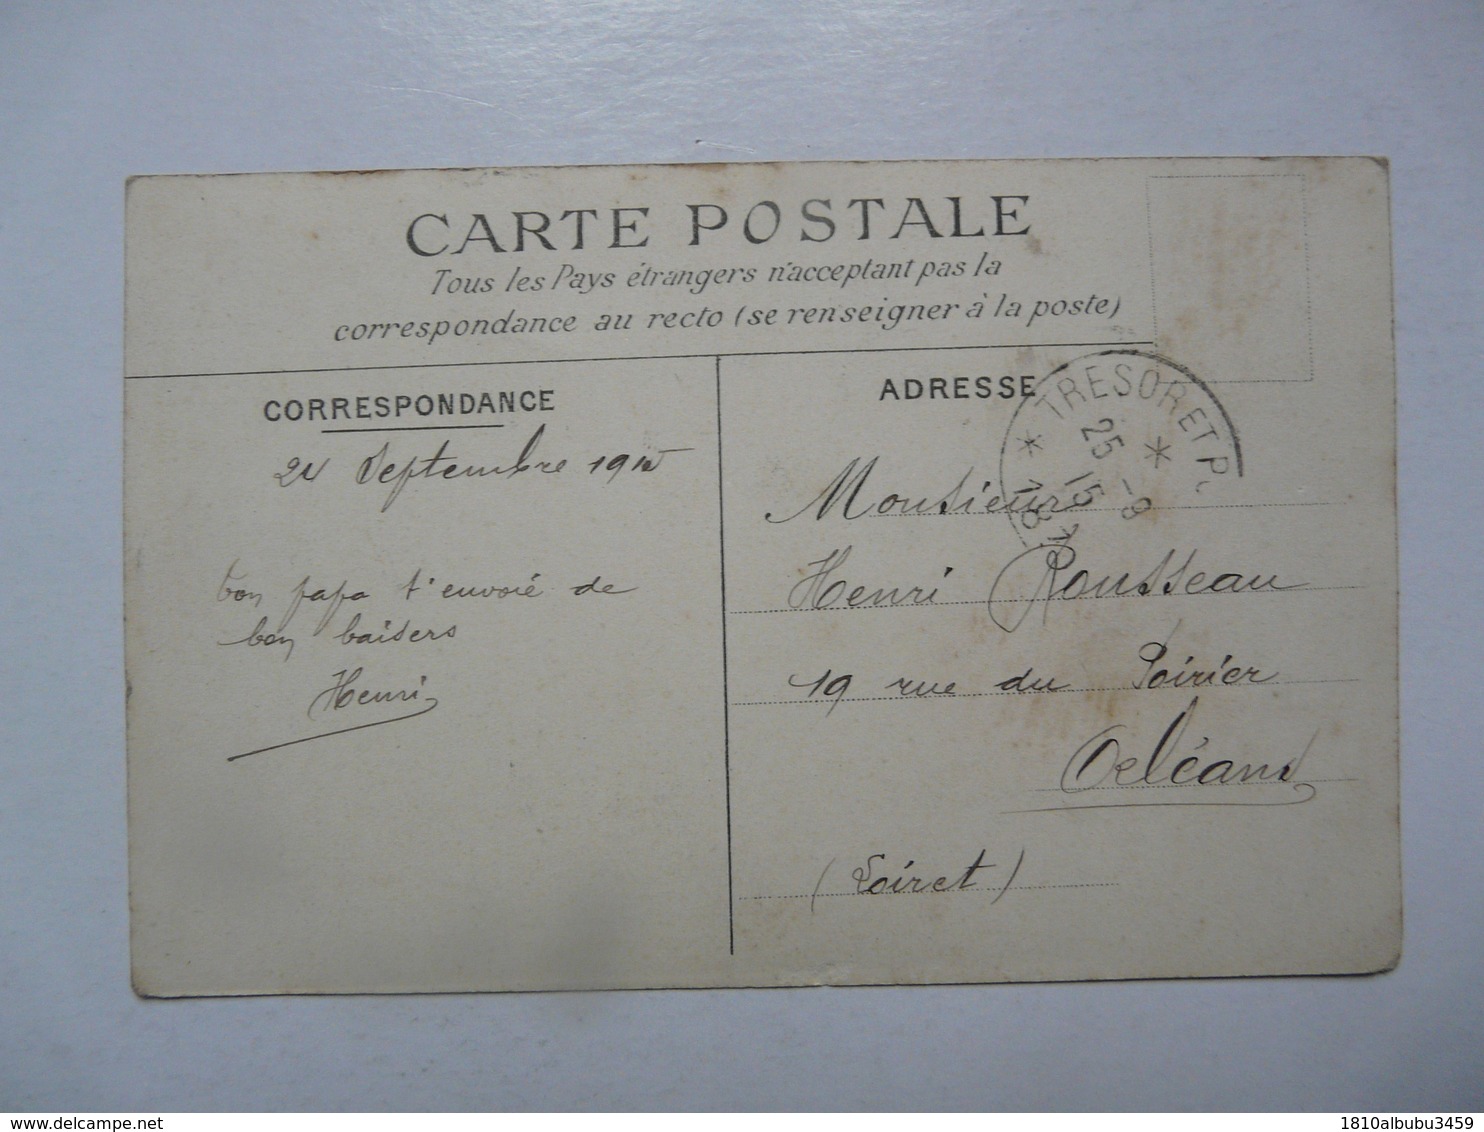 CARTE POSTALE
Tous les Pays étrangers n'acceptant pas la
correspondance au recto (se renseigner à la poste)
CORRESPONDANCE
ADRESSE
TRESOR ET P.
25 -9
15
24 Septembre 1915
ton papa t'envoié de
bon baisers
Henri
Monsieur
Henri Rousseau
19 rue du Poirier
Orléans
(Loiret)
1810albubu3459